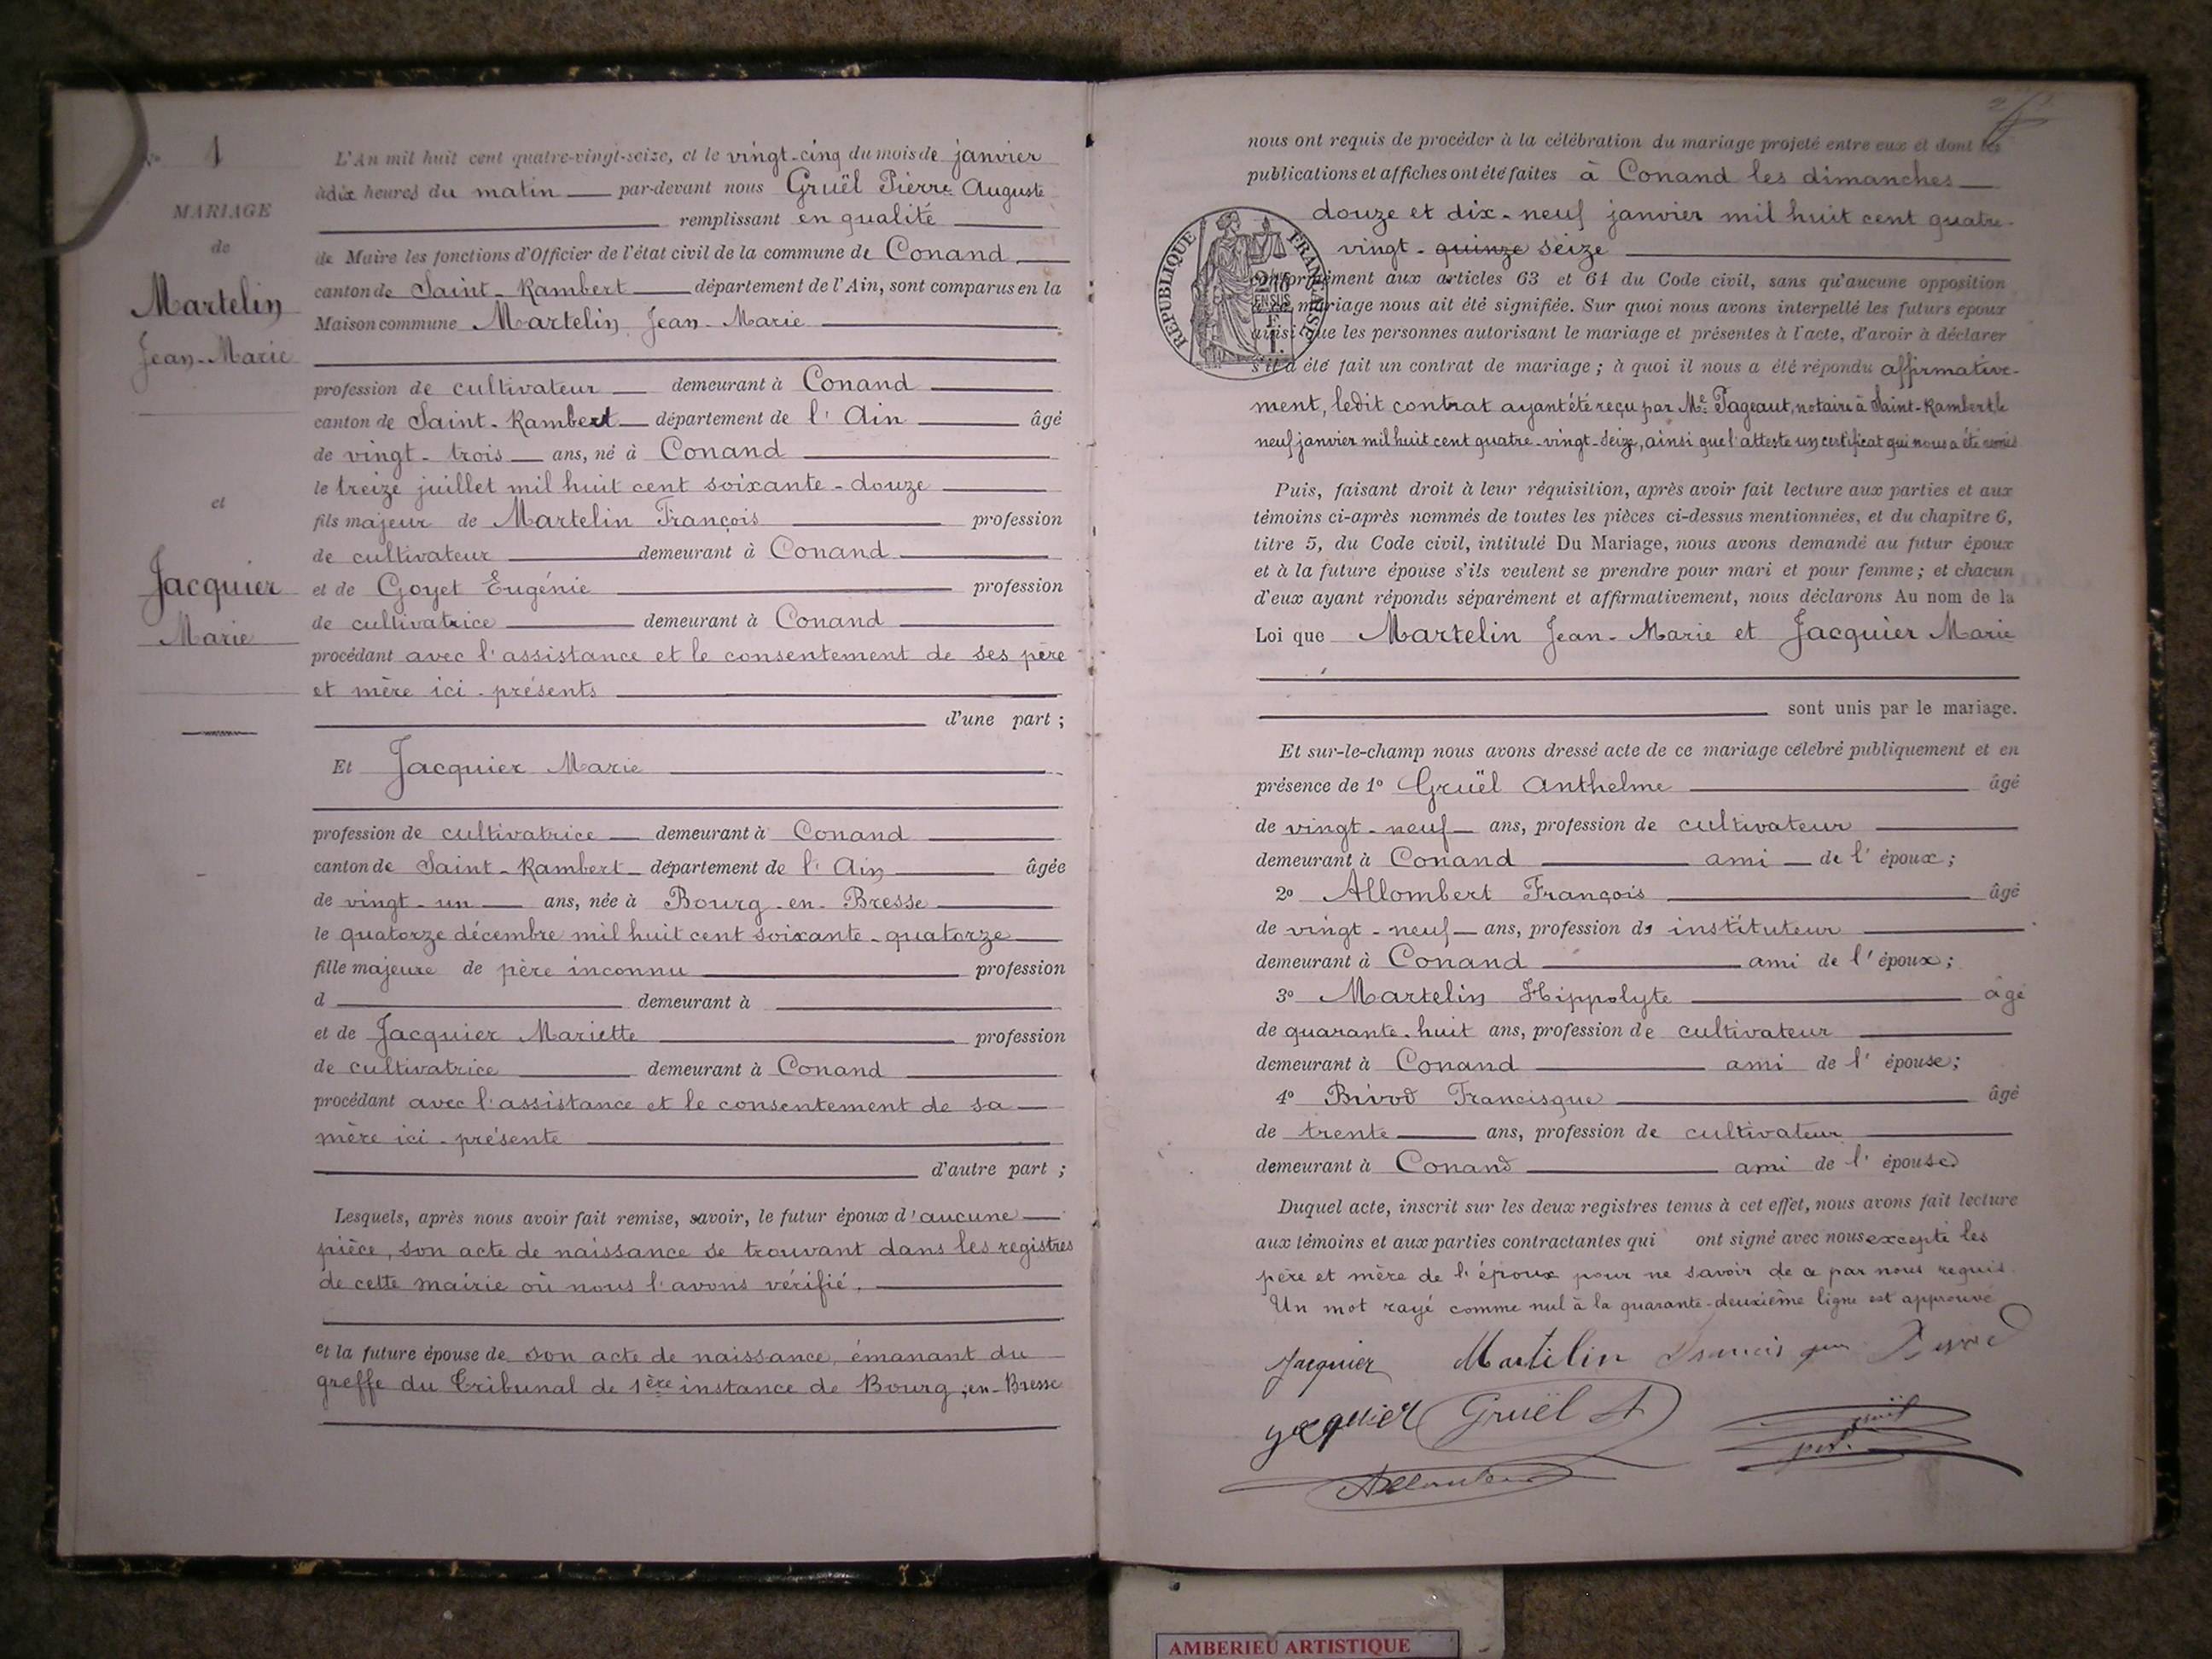 N° 1
MARIAGE
de
Martelin
Jean-Marie
et
Jacquier
Marie
L'An mil huit cent quatre-vingt-seize, et le vingt-cinq du mois de janvier
à dix heures du matin par-devant nous Gruël Pierre Auguste
remplissant en qualité
de Maire les fonctions d'Officier de l'état civil de la commune de Conand
canton de Saint-Rambert département de l'Ain, sont comparus en la
Maison commune Martelin Jean-Marie
profession de cultivateur demeurant à Conand
canton de Saint-Rambert département de l'Ain âgé
de vingt-trois ans, né à Conand
le treize juillet mil huit cent soixante-douze
fils majeur de Martelin François profession
de cultivateur demeurant à Conand
et de Goyet Eugénie profession
de cultivatrice demeurant à Conand
procédant avec l'assistance et le consentement de ses père
et mère ici-présents
d'une part ;
Et Jacquier Marie
profession de cultivatrice demeurant à Conand
canton de Saint-Rambert département de l'Ain âgée
de vingt-un ans, née à Bourg-en-Bresse
le quatorze décembre mil huit cent soixante-quatorze
fille majeure de père inconnu profession
d demeurant à
et de Jacquier Mariette profession
de cultivatrice demeurant à Conand
procédant avec l'assistance et le consentement de sa
mère ici-présente
d'autre part ;
Lesquels, après nous avoir fait remise, savoir, le futur époux d'aucune
pièce, son acte de naissance se trouvant dans les registres
de cette mairie où nous l'avons vérifié.
et la future épouse de son acte de naissance, émanant du
greffe du Tribunal de 1ère instance de Bourg-en-Bresse
nous ont requis de procéder à la célébration du mariage projeté entre eux et dont les
publications et affiches ont été faites à Conand les dimanches
douze et dix-neuf janvier mil huit cent quatre-
vingt-quinze seize
RÉPUBLIQUE FRANÇAISE
conformément aux articles 63 et 64 du Code civil, sans qu'aucune opposition
à ce mariage nous ait été signifiée. Sur quoi nous avons interpellé les futurs époux
ainsi que les personnes autorisant le mariage et présentes à l'acte, d'avoir à déclarer
s'il a été fait un contrat de mariage ; à quoi il nous a été répondu affirmative-
ment, ledit contrat ayant été reçu par Me Pageaut, notaire à Saint-Rambert, le
neuf janvier mil huit cent quatre-vingt-seize, ainsi que l'atteste un certificat qui nous a été remis
Puis, faisant droit à leur réquisition, après avoir fait lecture aux parties et aux
témoins ci-après nommés de toutes les pièces ci-dessus mentionnées, et du chapitre 6,
titre 5, du Code civil, intitulé Du Mariage, nous avons demandé au futur époux
et à la future épouse s'ils veulent se prendre pour mari et pour femme ; et chacun
d'eux ayant répondu séparément et affirmativement, nous déclarons Au nom de la
Loi que Martelin Jean-Marie et Jacquier Marie
sont unis par le mariage.
Et sur-le-champ nous avons dressé acte de ce mariage célébré publiquement et en
présence de 1° Gruël Anthelme âgé
de vingt-neuf ans, profession de cultivateur
demeurant à Conand ami de l'époux ;
2° Allombert François âgé
de vingt-neuf ans, profession de instituteur
demeurant à Conand ami de l'époux ;
3° Martelin Hippolyte âgé
de quarante-huit ans, profession de cultivateur
demeurant à Conand ami de l'épouse ;
4° Bivod Francisque âgé
de trente ans, profession de cultivateur
demeurant à Conand ami de l'épouse
Duquel acte, inscrit sur les deux registres tenus à cet effet, nous avons fait lecture
aux témoins et aux parties contractantes qui ont signé avec nous excepté les
père et mère de l'époux pour ne savoir de ce par nous requis
Un mot rayé comme nul à la quarante-deuxième ligne est approuvé
Jacquier Martelin
Jacquier Gruël A
Allombert
AMBERIEU ARTISTIQUE